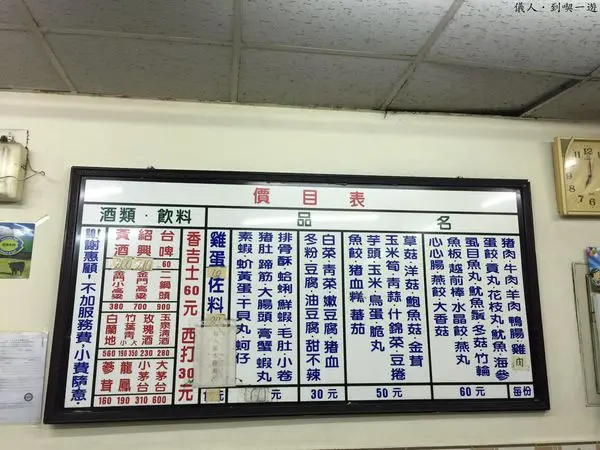 儀人·到喫一遊
價目表
品名
豬肉·牛肉·羊肉·鴨腸·雞肉
蛋餃·貢丸·花枝丸·魷魚·海參
虱目魚丸·魷魚鬚·冬菇·竹輪
魚板·越前棒·水晶餃·燕丸
心心腸·燕餃·大香菇
每份60元
草菇·洋菇·鮑魚菇·金茸
玉米筍·青蒜·什錦菜·豆捲
芋頭·玉米·鳥蛋·脆丸
魚餃·豬血糕·蕃茄
50元
白菜·青菜·嫩豆腐·豬血
冬粉·豆腐·油豆腐·甜不辣
30元
排骨酥·蛤蜊·鮮蝦·毛肚·小卷
豬肚·蹄筋·大腸頭·膏蟹·蝦丸
素蝦·蚧黃蛋·干貝丸·蚵仔
元
雞蛋
佐料
元
酒類·飲料
香吉士60元
西打30元
台啤
60
紹興
黃酒
二鍋頭
900
金門高粱
700
金門小高粱
380
玉泉清酒
280
玫瑰酒
230
竹葉青
大350
小190
白蘭地
560
大茅台
600
小茅台
310
龍鳳
190
蔘茸
160
謝謝惠顧,不加服務費·小費隨意·